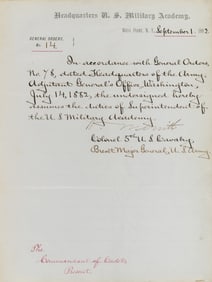 Headquarters U. S. Military Academy,
West Point, N. Y. September 1, 1882.
GENERAL ORDERS,
No. 14
In accordance with General Orders
No. 78, dated Headquarters of the Army,
Adjutant General's Office, Washington,
July 14, 1882, the undersigned hereby
assumes the duties of Superintendent of
the U. S. Military Academy.
Colonel 5th U. S. Cavalry,
Brevet Major General, U. S. Army
The
Commandant of Cadets
Present.